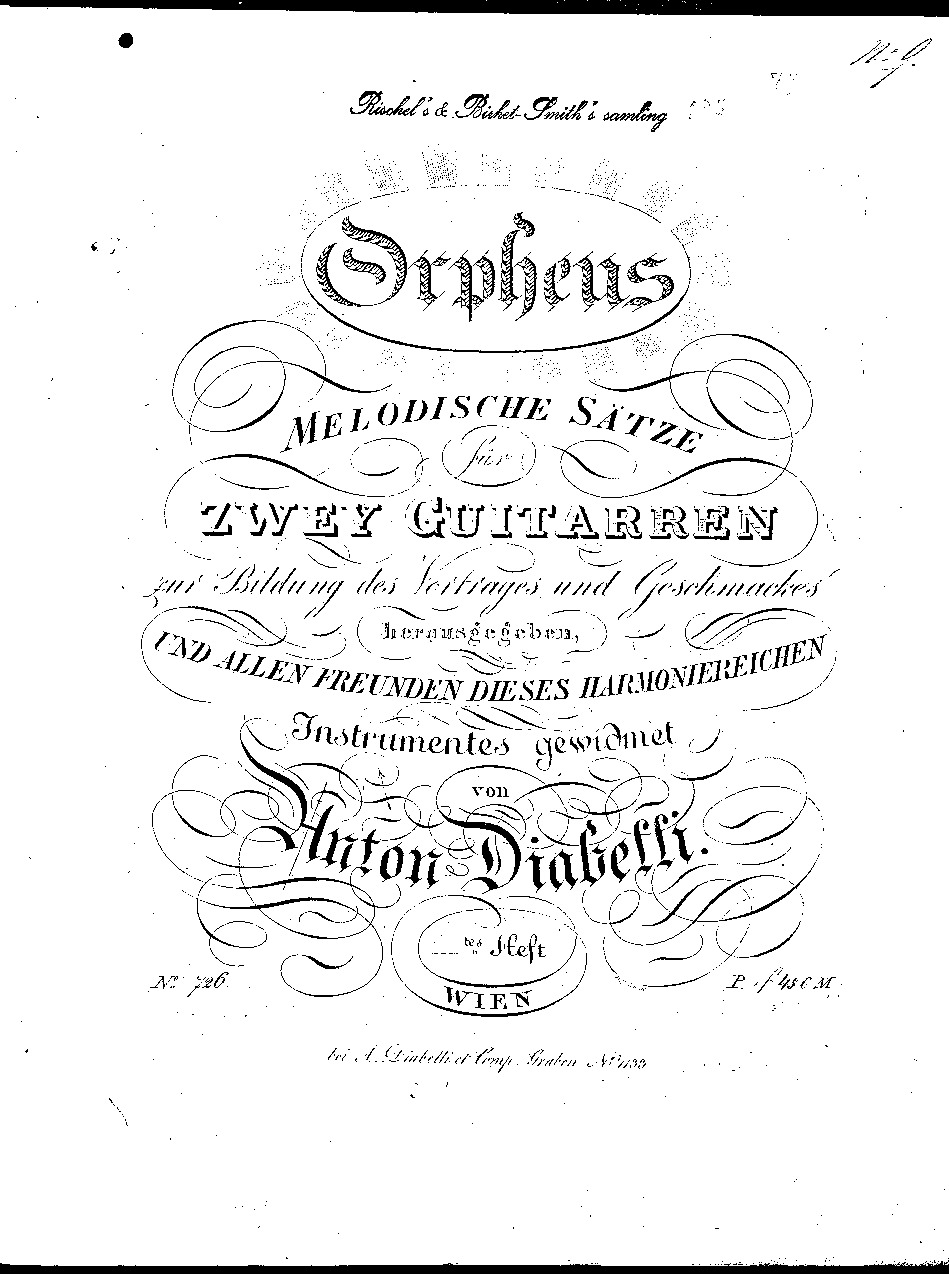 Rischel's & Birket-Smith's samling
Orpheus
MELODISCHE SÄTZE
für
ZWEY GUITARREN
zur Bildung des Vortrages und Geschmackes
herausgegeben,
UND ALLEN FREUNDEN DIESES HARMONIEREICHEN
Instrumentes gewidmet
von
Anton Diabelli.
tes Heft
No. 726.
WIEN
45 C M
bei A. Diabelli et Comp. Graben No. 1133